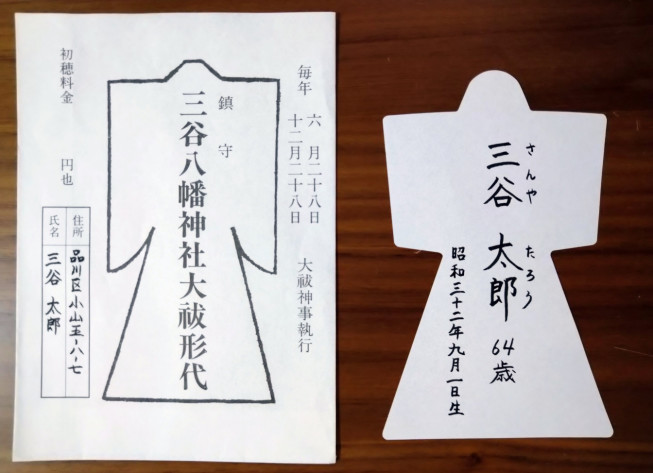 毎年
六月二十八日
十二月二十八日
大祓神事執行
鎮守
三谷八幡神社大祓形代
初穂料金 円也
住所
品川区小山五-八-七
氏名
三谷 太郎
さんや たろう
三谷 太郎 64歳
昭和三十二年九月一日生